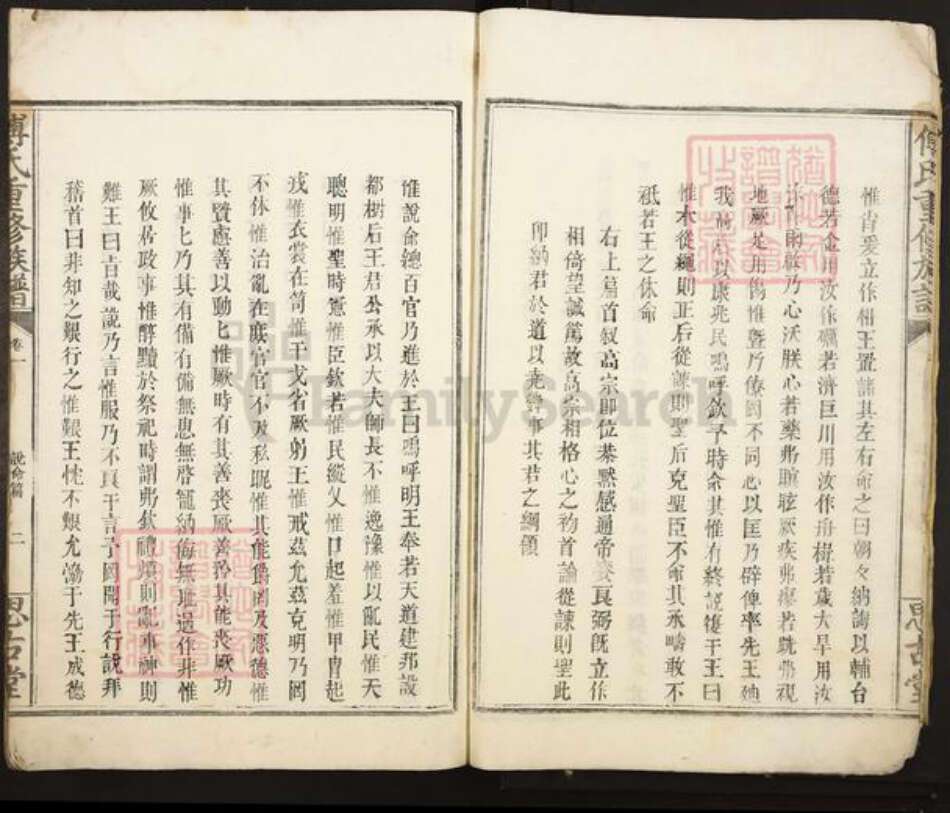 傅氏重修族譜
思古堂
惟肖爰立作相王置諸其左右命之曰朝夕納誨以輔台
德若金用汝作礪若濟巨川用汝作舟楫若歲大旱用汝
作霖雨啟乃心沃朕心若藥弗瞑眩厥疾弗瘳若跣弗視
地厥足用傷惟暨乃僚罔不同心以匡乃辟俾率先王迪
我高后以康兆民嗚呼欽予時命其惟有終說復于王曰
惟木從繩則正后從諫則聖后克聖臣不命其承疇敢不
祇若王之休命
右上篇首敍高宗即位恭默感通帝賚良弼旣立作
相倚望誠篤故高宗相格心之初首論從諫則聖此
即納君於道以堯舜事其君之綱領
惟說命總百官乃進於王曰嗚呼明王奉若天道建邦設
都樹后王君公承以大夫師長不惟逸豫惟以亂民惟天
聰明惟聖時憲惟臣欽若惟民從乂惟口起羞惟甲冑起
戎惟衣裳在笥惟干戈省厥躬王惟戒茲允茲克明乃罔
不休惟治亂在庶官官不及私昵惟其能爵罔及惡德惟
其賢慮善以動匕惟厥時有其善喪厥善矜其能喪厥功
惟事匕乃其有備有備無患無啓寵納侮無恥過作非惟
厥攸居政事惟醇黷於祭祀時謂弗欽禮煩則亂事神則
難王曰旨哉說乃言惟服乃不良于言予罔聞于行說拜
稽首曰非知之艱行之惟艱王忱不艱允恊于先王成德
傅氏重修族譜
卷一
說命篇
二
思古堂
FamilySearch